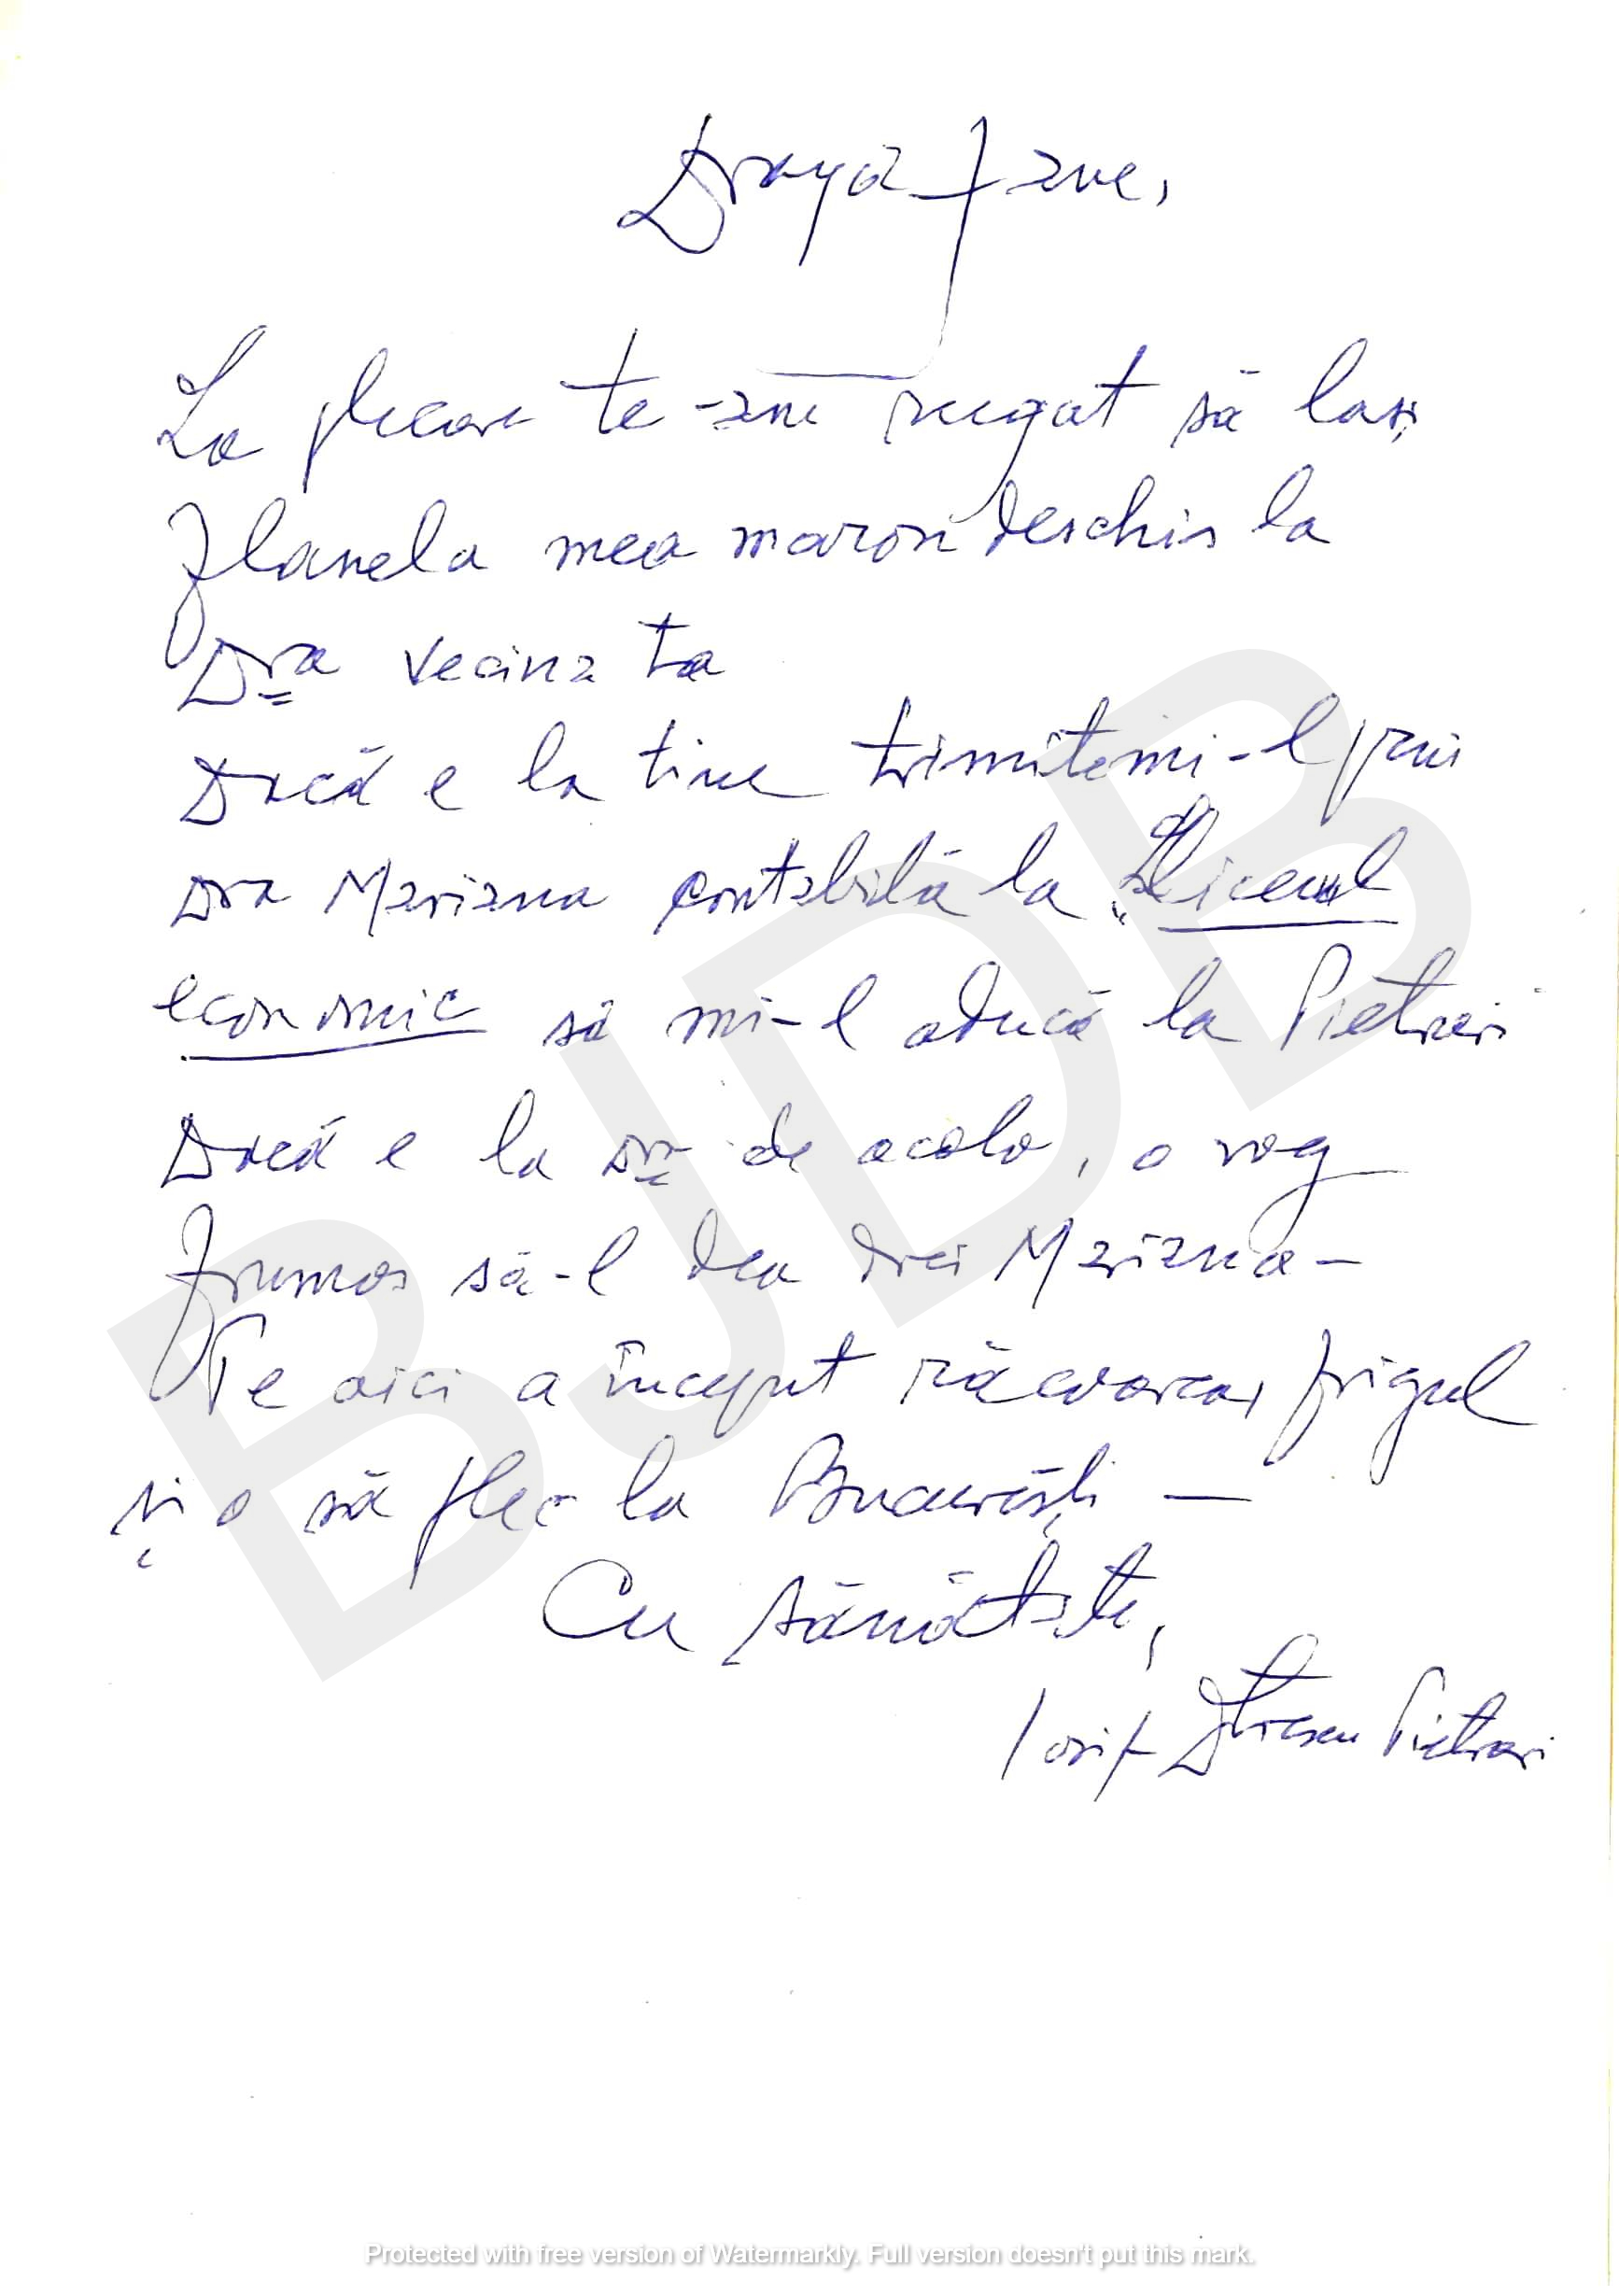 Dragă Jane,
La plecare te-am rugat să lași
flanela mea maron deschis la
Dra vecina ta
Dacă e la tine trimitemi-l prin
Dra Mariana contabilă la „Liceul
economic să mi-l aducă la Pietrari
Dacă e la Dra de acolo, o rog
frumos să-l dea drei Mariana –
Pe aici a început răcoarea, frigul
și o să plec la București –
Cu sănătate,
Iosif Pietrari
BJDB
Protected with free version of Watermarkly. Full version doesn't put this mark.